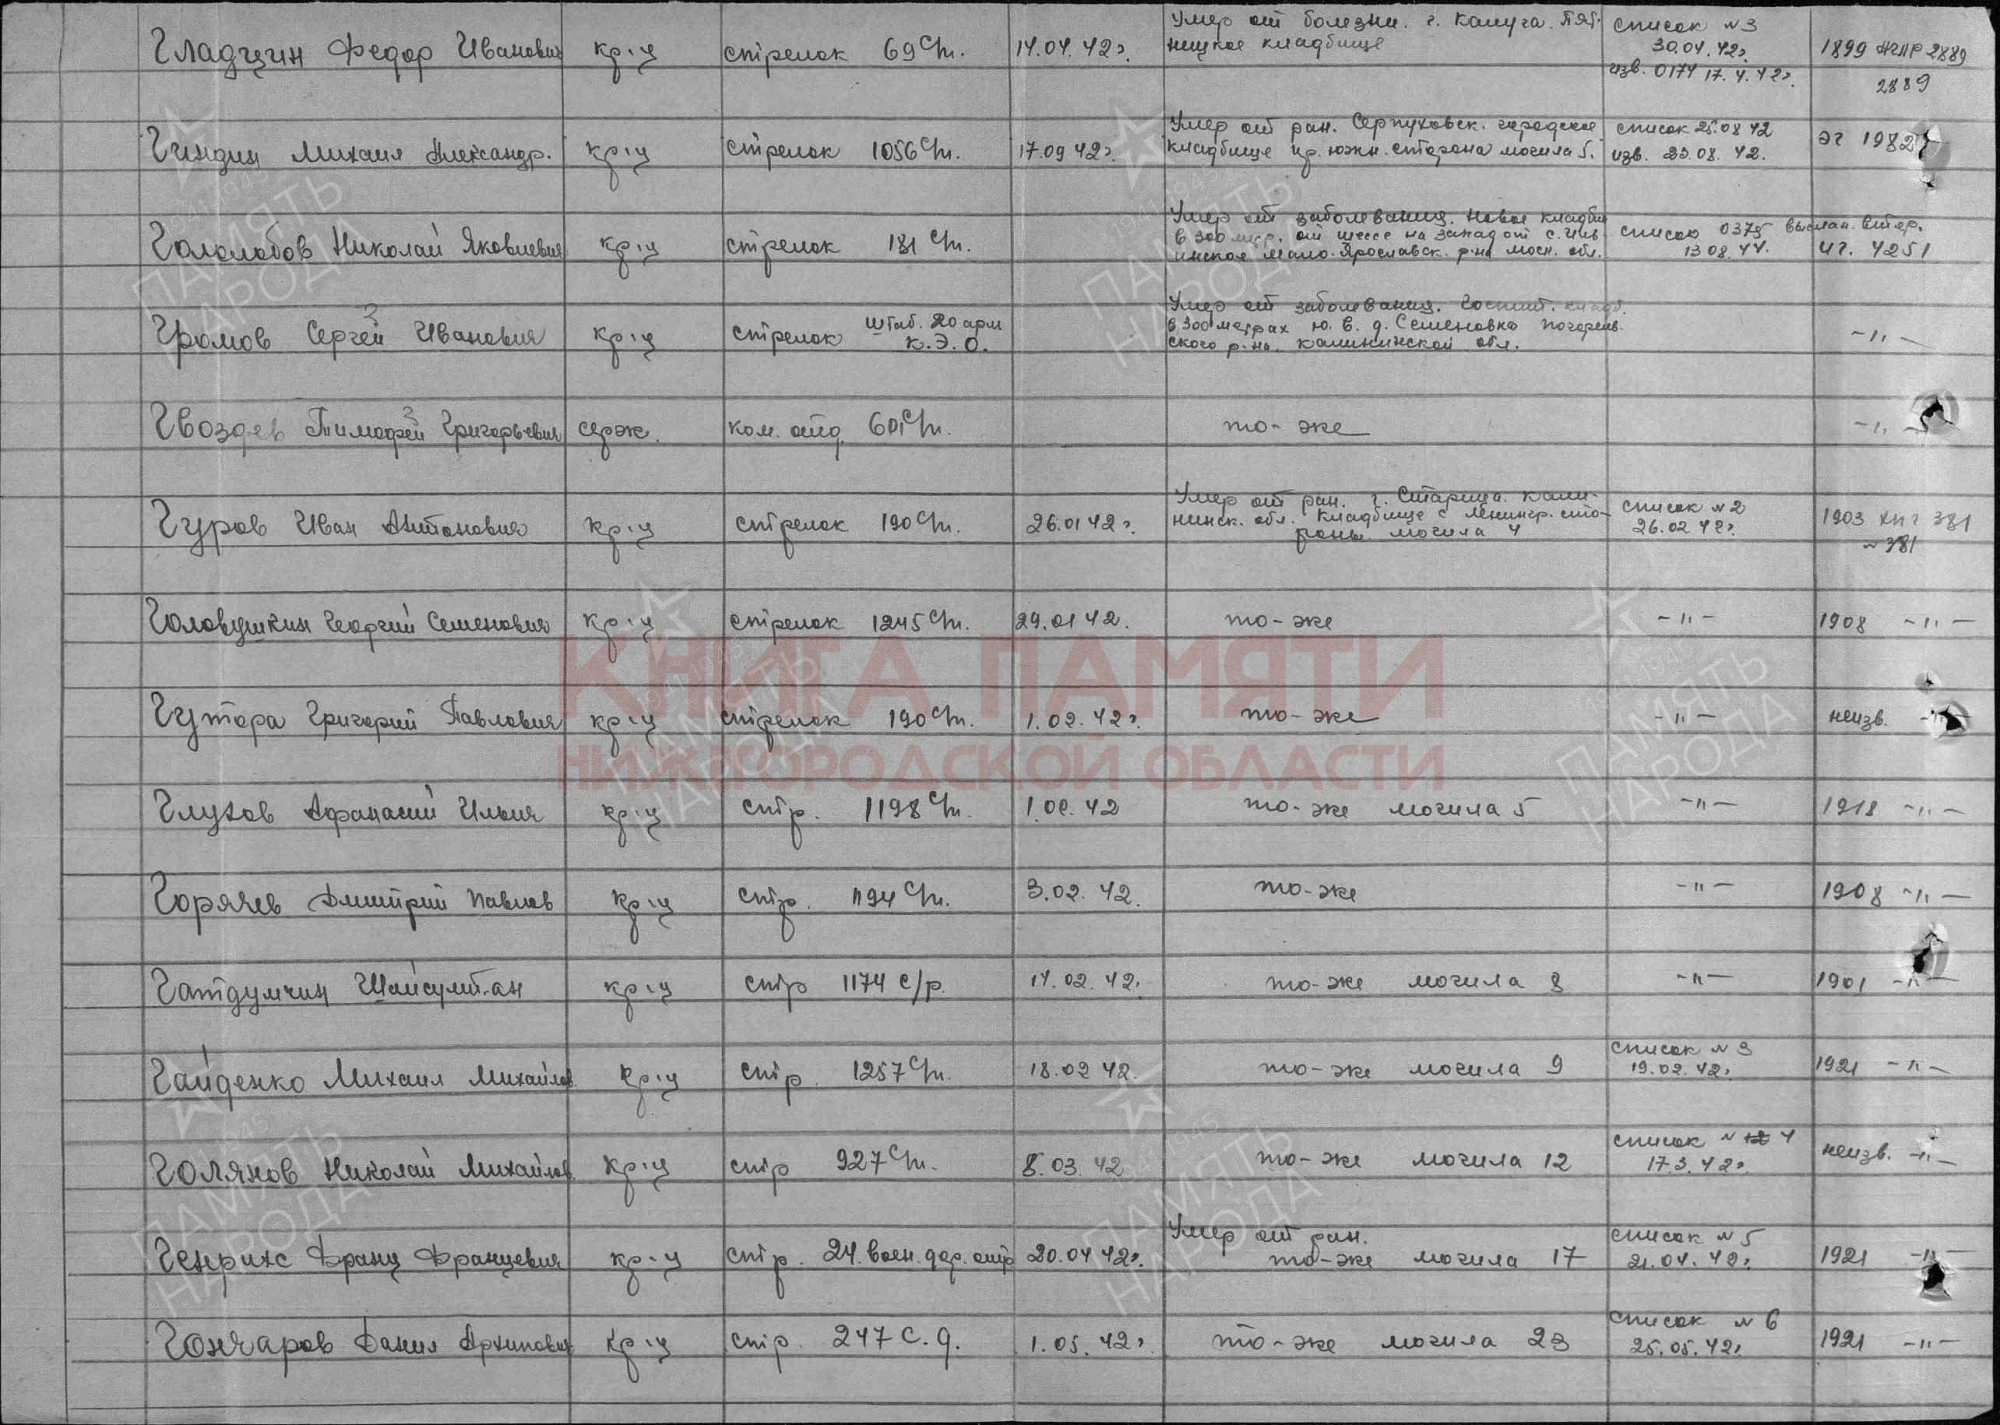 Умер от болезни. г. Калуга. Пят-
список №3
Гладцин Федор Иванович кр-ц стрелок 69 сп. 14.04.42г. ницкое кладбище 30.04.42г. 1899
изв. 0174 17.4.42г.
2889
Умер от ран. Серпуховск. городское список 25.08 42
Гиндин Михаил Александр. кр-ц стрелок 1056 сп. 17.09 42г. кладбище юж. сторона могила 5. изв. 23.08. 42. эг 1982
Умер от заболевания. Новое кладби
Гололобов Николай Яковлевич кр-ц стрелок 181 сп. в 300 мтр. от шоссе на запад от с. список 0375 выслан. втор.
Мало-Ярославск. р-на моск. обл. 13 08. 44. иг. 4251
Умер от заболевания. Госпит. кладб.
Громов Сергей Иванович кр-ц стрелок штаб. 20 арм в 300 метрах ю. в. д. Семеновка погорель-
К.Э.О. ского р-на. калининской обл. -"-
Гвоздев Тимофей Григорьевич серж. ком. отд. 601 сп. то-же -"-
Умер от ран. г. Старица. Кали-
Гуров Иван Антонович кр-ц стрелок 190 сп. 26.01 42г. нинск. обл. кладбище с ленингр. сто- список №2 1903 кн г 381
роны могила 4 26.02 42г. №381
Головушкин Георгий Семенович кр-ц стрелок 1245 сп. 29.01 42. то-же -"- 1908 -"-
Гутора Григорий Павлович кр-ц стрелок 190 сп. 1.02.42г. то-же -"- неизв. -"-
Глухов Афанасий Ильич кр-ц стр. 1198 сп. 1.02.42 то-же могила 5 -"- 1918 -"-
Горячев Дмитрий Павлов кр-ц стр. 1194 сп. 3.02.42. то-же -"- 1908 -"-
кр-ц стр 1174 с/р. 14.02.42г. то-же могила 8 -"- 1901 -"-
список №3
Гайденко Михаил Михайлов кр-ц стр. 1257 сп. 18.02 42. то-же могила 9 19.02.42г. 1921 -"-
список № 4
Голянов Николай Михайлов. кр-ц стр 927 сп. 8.03.42 то-же могила 12 17.3.42г. неизв. -"-
Умер от ран. список №5
Генрихс Франц Францевич кр-ц стр. 24. воен. дор. отр 20.04 42г. то-же могила 17 21.04.42г. 1921 -"-
список №6
Гончаров Данил Архипович кр-ц стр. 247 с.д. 1.05.42г. то-же могила 23 25.05.42г. 1921 -"-
КНИГА ПАМЯТИ
НИЖЕГОРОДСКОЙ ОБЛАСТИ
1941-1945
ПАМЯТЬ
НАРОДА